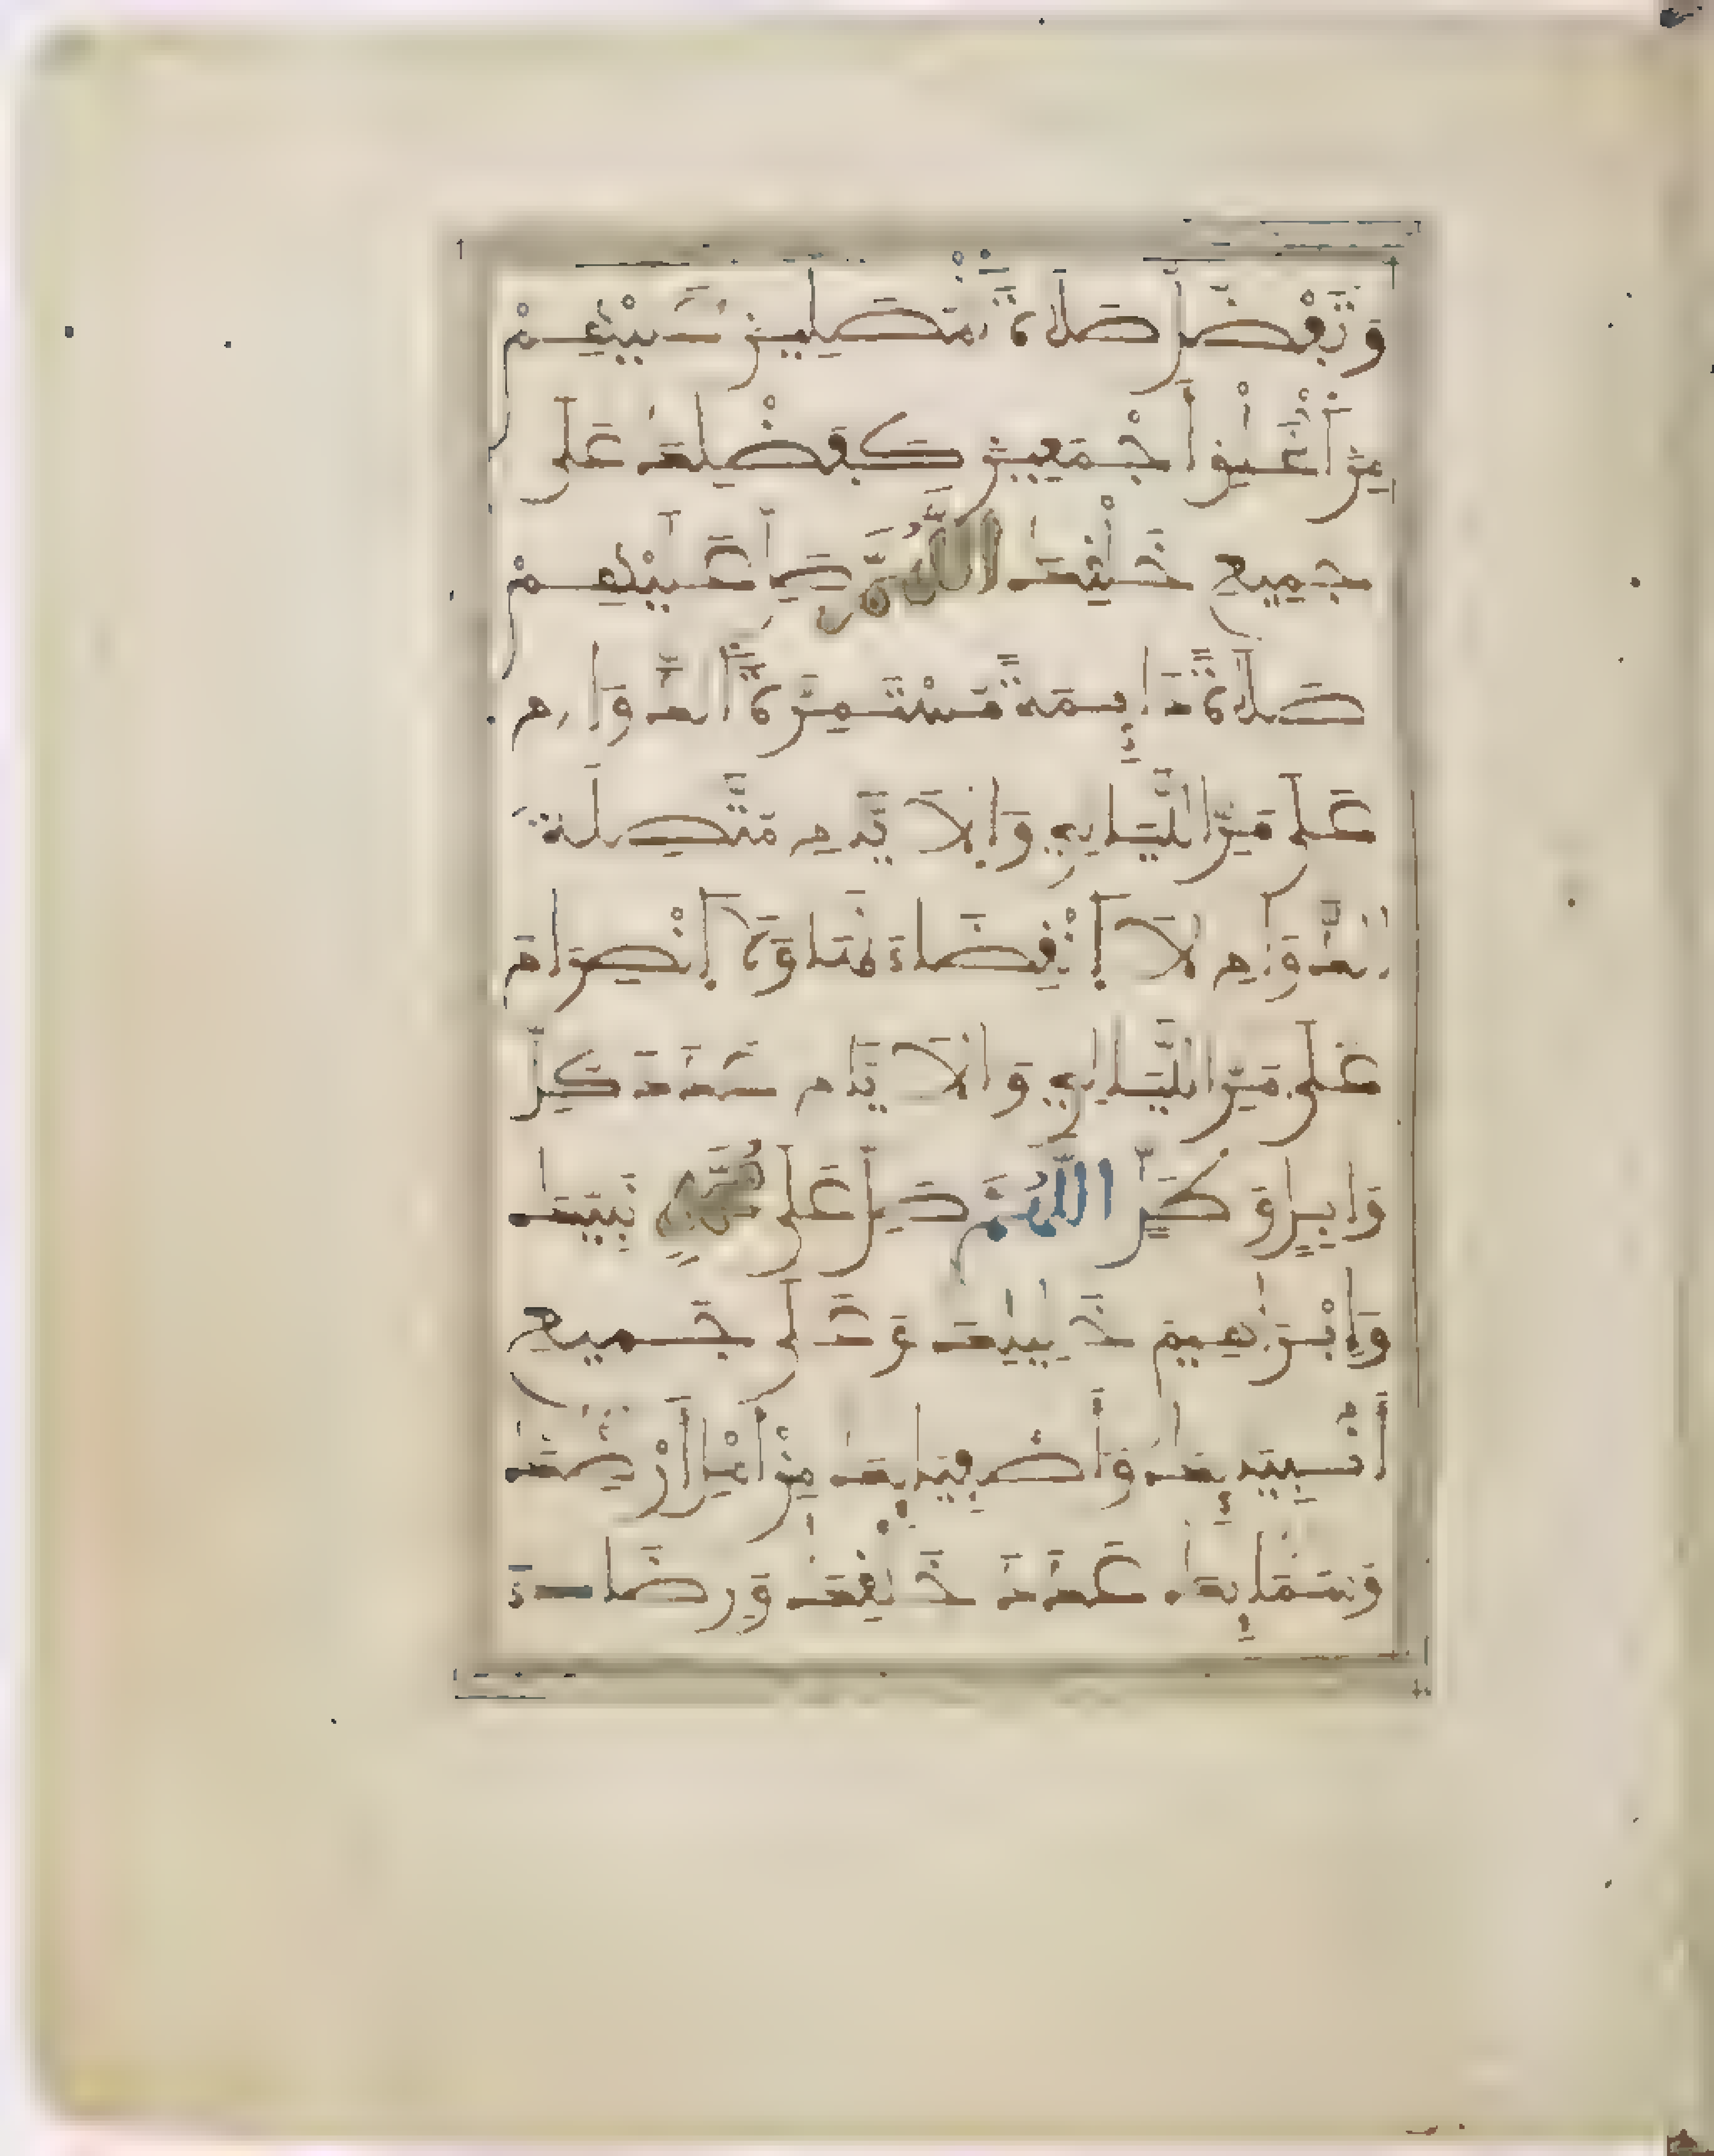 وَتَفْضُلُ صَلَاةَ الْمُصَلِّينَ عَلَيْهِمْ
مِنَ الْخَلْقِ أَجْمَعِينَ كَفَضْلِكَ عَلَى
جَمِيعِ خَلْقِكَ اللَّهُمَّ صَلِّ عَلَيْهِمْ
صَلَاةً دَائِمَةً مُسْتَمِرَّةَ الدَّوَامِ
عَلَى مَرِّ اللَّيَالِي وَالْأَيَّامِ مُتَّصِلَةَ
الدَّوَامِ لَا انْقِضَاءَ لَهَا وَلَا انْصِرَامَ
عَلَى مَرِّ اللَّيَالِي وَالْأَيَّامِ عَدَدَ كُلِّ
وَابِلٍ وَطَلٍّ اللَّهُمَّ صَلِّ عَلَى مُحَمَّدٍ نَبِيِّكَ
وَإِبْرَاهِيمَ خَلِيلِكَ وَعَلَى جَمِيعِ
أَنْبِيَائِكَ وَأَصْفِيَائِكَ مِنْ أَهْلِ أَرْضِكَ
وَسَمَائِكَ عَدَدَ خَلْقِكَ وَرِضَاءَ